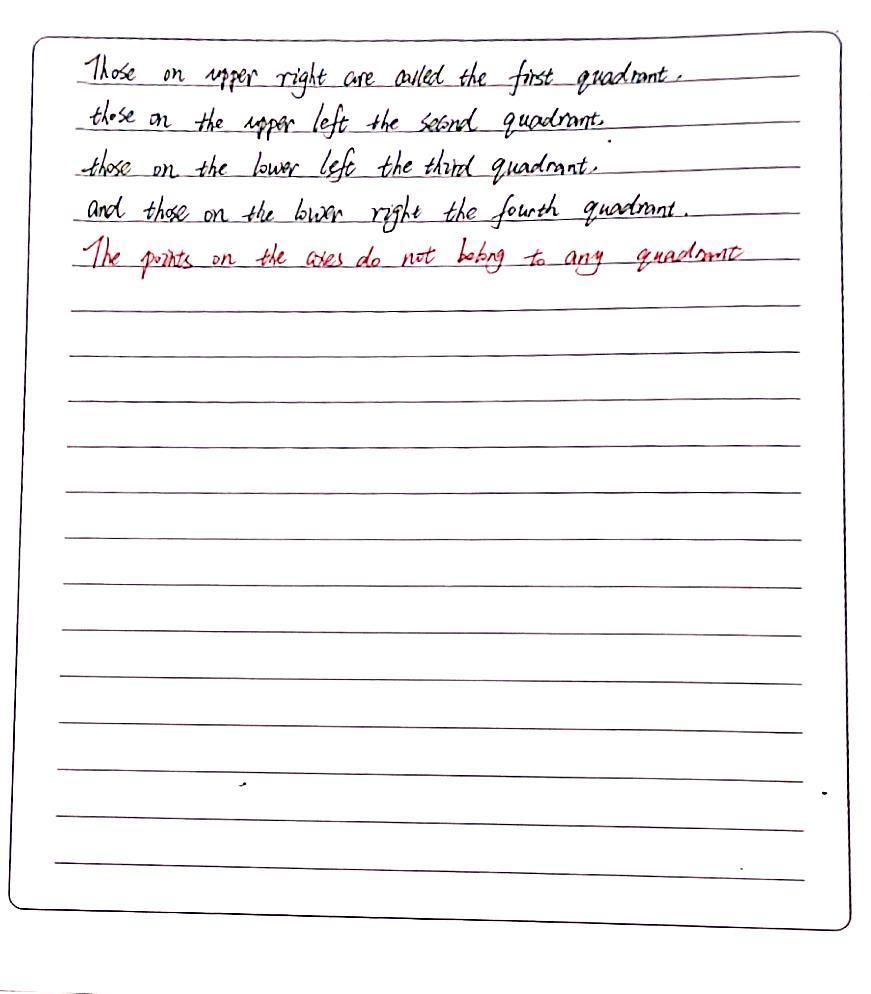 Those on upper right are called the first quadrant.
those on the upper left the second quadrant,
those on the lower left the third quadrant,
and those on the lower right the fourth quadrant.
The points on the axes do not belong to any quadrant